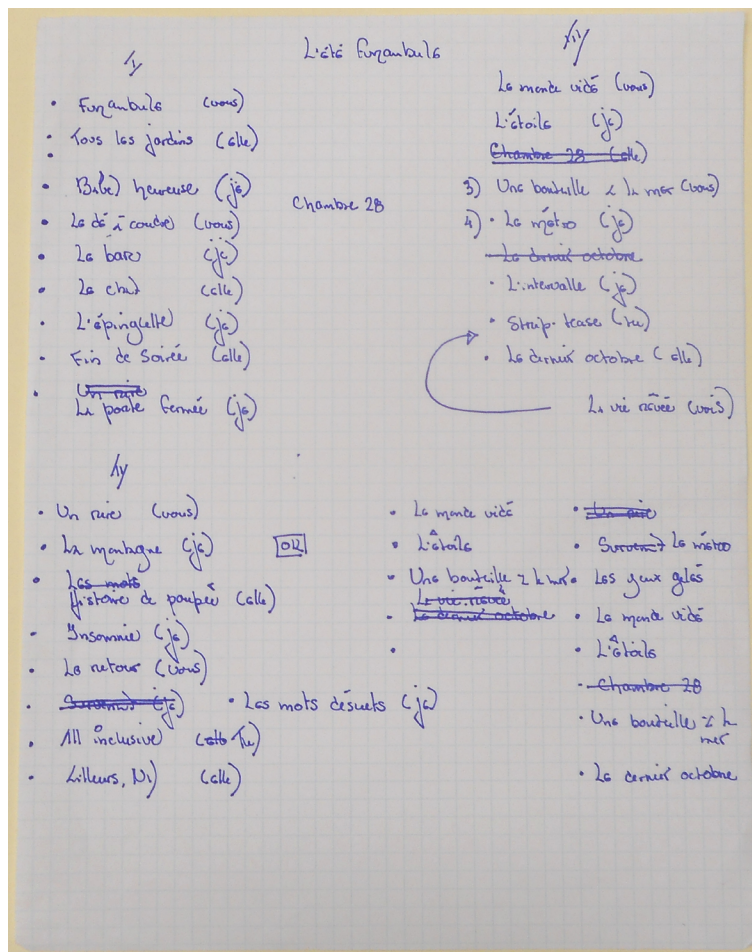 L'été Funambule
I
• Funambule (vous)
• Tous les jardins (elle)
•
• Bébé heureuse (je)
• Le dé à coudre (vous)
• Le banc (je)
• Le chat (elle)
• L'épinglette (je)
• Fin de soirée (elle)
• Un rire
La porte fermée (je)
Chambre 28
III
Le monde vidé (vous)
L'étoile (je)
Chambre 28 (elle)
3) Une bouteille à la mer (vous)
4) • Le métro (je)
Le dernier octobre
• L'intervalle (je)
• Strip-tease (tu)
• Le dernier octobre (elle)
La vie rêvée (vous)
• Un rire (vous)
• La montagne (je)
OK
• Les mots
Histoire de poupée (elle)
• Insomnie (je)
• Le retour (vous)
• (je)
• Les mots désuets (je)
• All inclusive (elle Tu)
• Ailleurs, (elle)
• Le monde vidé
• L'étoile
• Une bouteille à la mer
La vie rêvée
• Le dernier octobre
•
• Un rire
• Le métro
• Les yeux gelés
• Le monde vidé
• L'étoile
• Chambre 28
• Une bouteille à la
mer
• Le dernier octobre